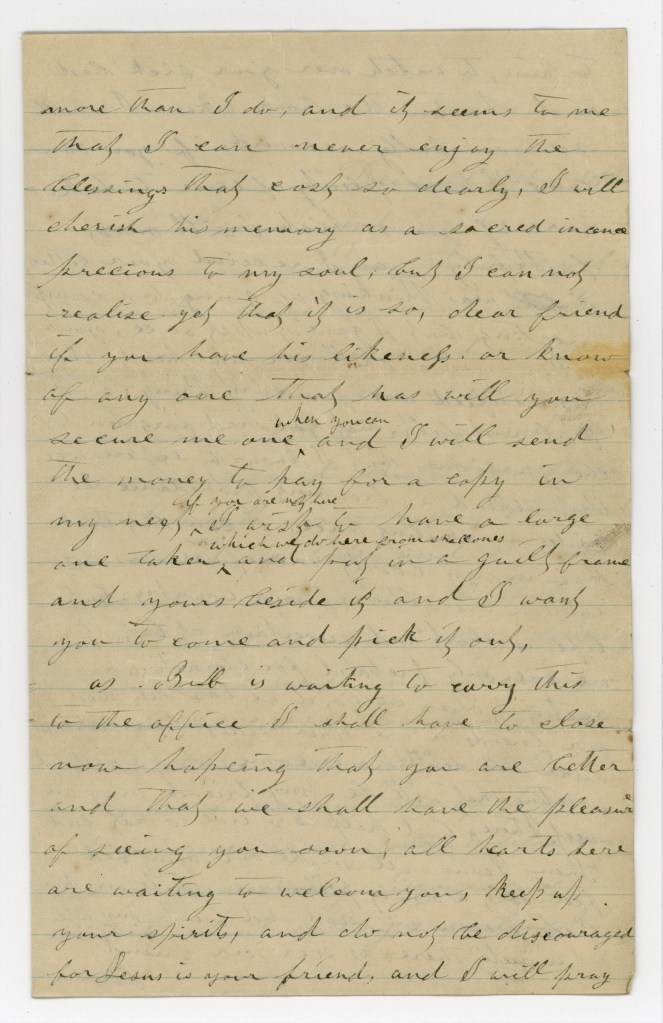 more than I do, and it seems to me
that I can never enjoy the
blessings that cost so dearly, I will
cherish his memory as a sacred incence
precious to my soul, but I can not
realise yet that it is so, dear friend
if you have his likeness. or know
of any one that has will you
when you can
secure me one and I will send
the money to pay for a copy in
if you are not here
my next I wish to have a large
which we do here from small ones
one taken, and put in a guilt frame
and yours beside it and I want
you to come and pick it out,
as Bub is waiting to carry this
to the appiice I shall have to close
now hopeing that you are better
and that we shall have the pleasure
of seeing you soon, all hearts here
are waiting to welcom you, keep up
your spirits, and do not be discouraged
for Jesus is your friend, and I will pray